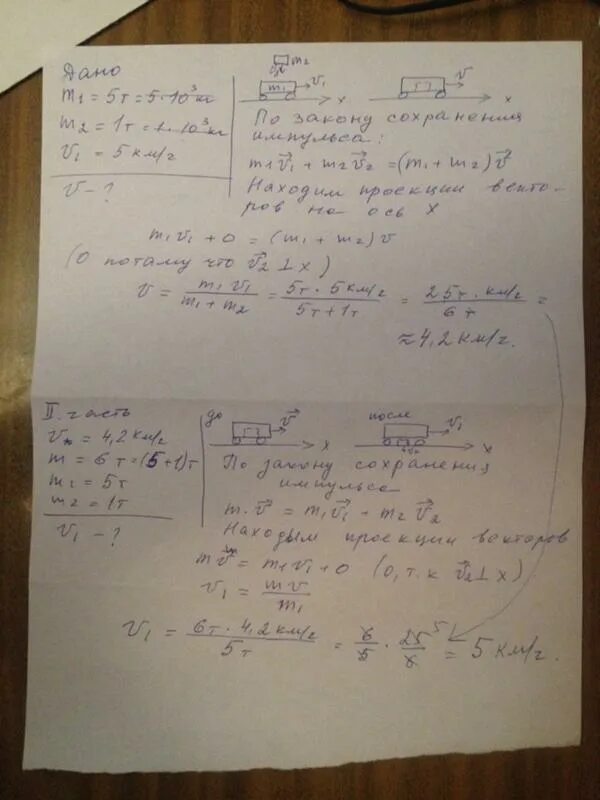 Дано
m₁ = 5т = 5·10³ кг
m₂ = 1т = 1·10³ кг
v₁ = 5 км/г
v – ?
m₂
m₁
v⃗₁
x
v⃗
x
По закону сохранения
импульса:
m₁v⃗₁ + m₂v⃗₂ = (m₁ + m₂)v⃗
Находим проекции векто-
ров на ось X
m₁v₁ + 0 = (m₁ + m₂)v
(0 потому что v⃗₂ ⊥ x)
v = m₁v₁ / (m₁ + m₂) = 5т · 5 км/г / (5т + 1т) = 25т · км/г / 6т =
≈ 4,2 км/г.
II. часть
v = 4,2 км/г
m = 6 т = (5+1)т
m₁ = 5т
m₂ = 1т
v₁ – ?
до
v⃗
x
после
v⃗₁
x
По закону сохранения
импульса
m·v⃗ = m₁v⃗₁ + m₂v⃗₂
Находым проекции векторов
mv = m₁v₁ + 0 (0, т.к v⃗₂ ⊥ x)
v₁ = mv / m₁
v₁ = 6т · 4,2 км/г / 5т = 6/5 · 25/6 5 = 5 км/г.